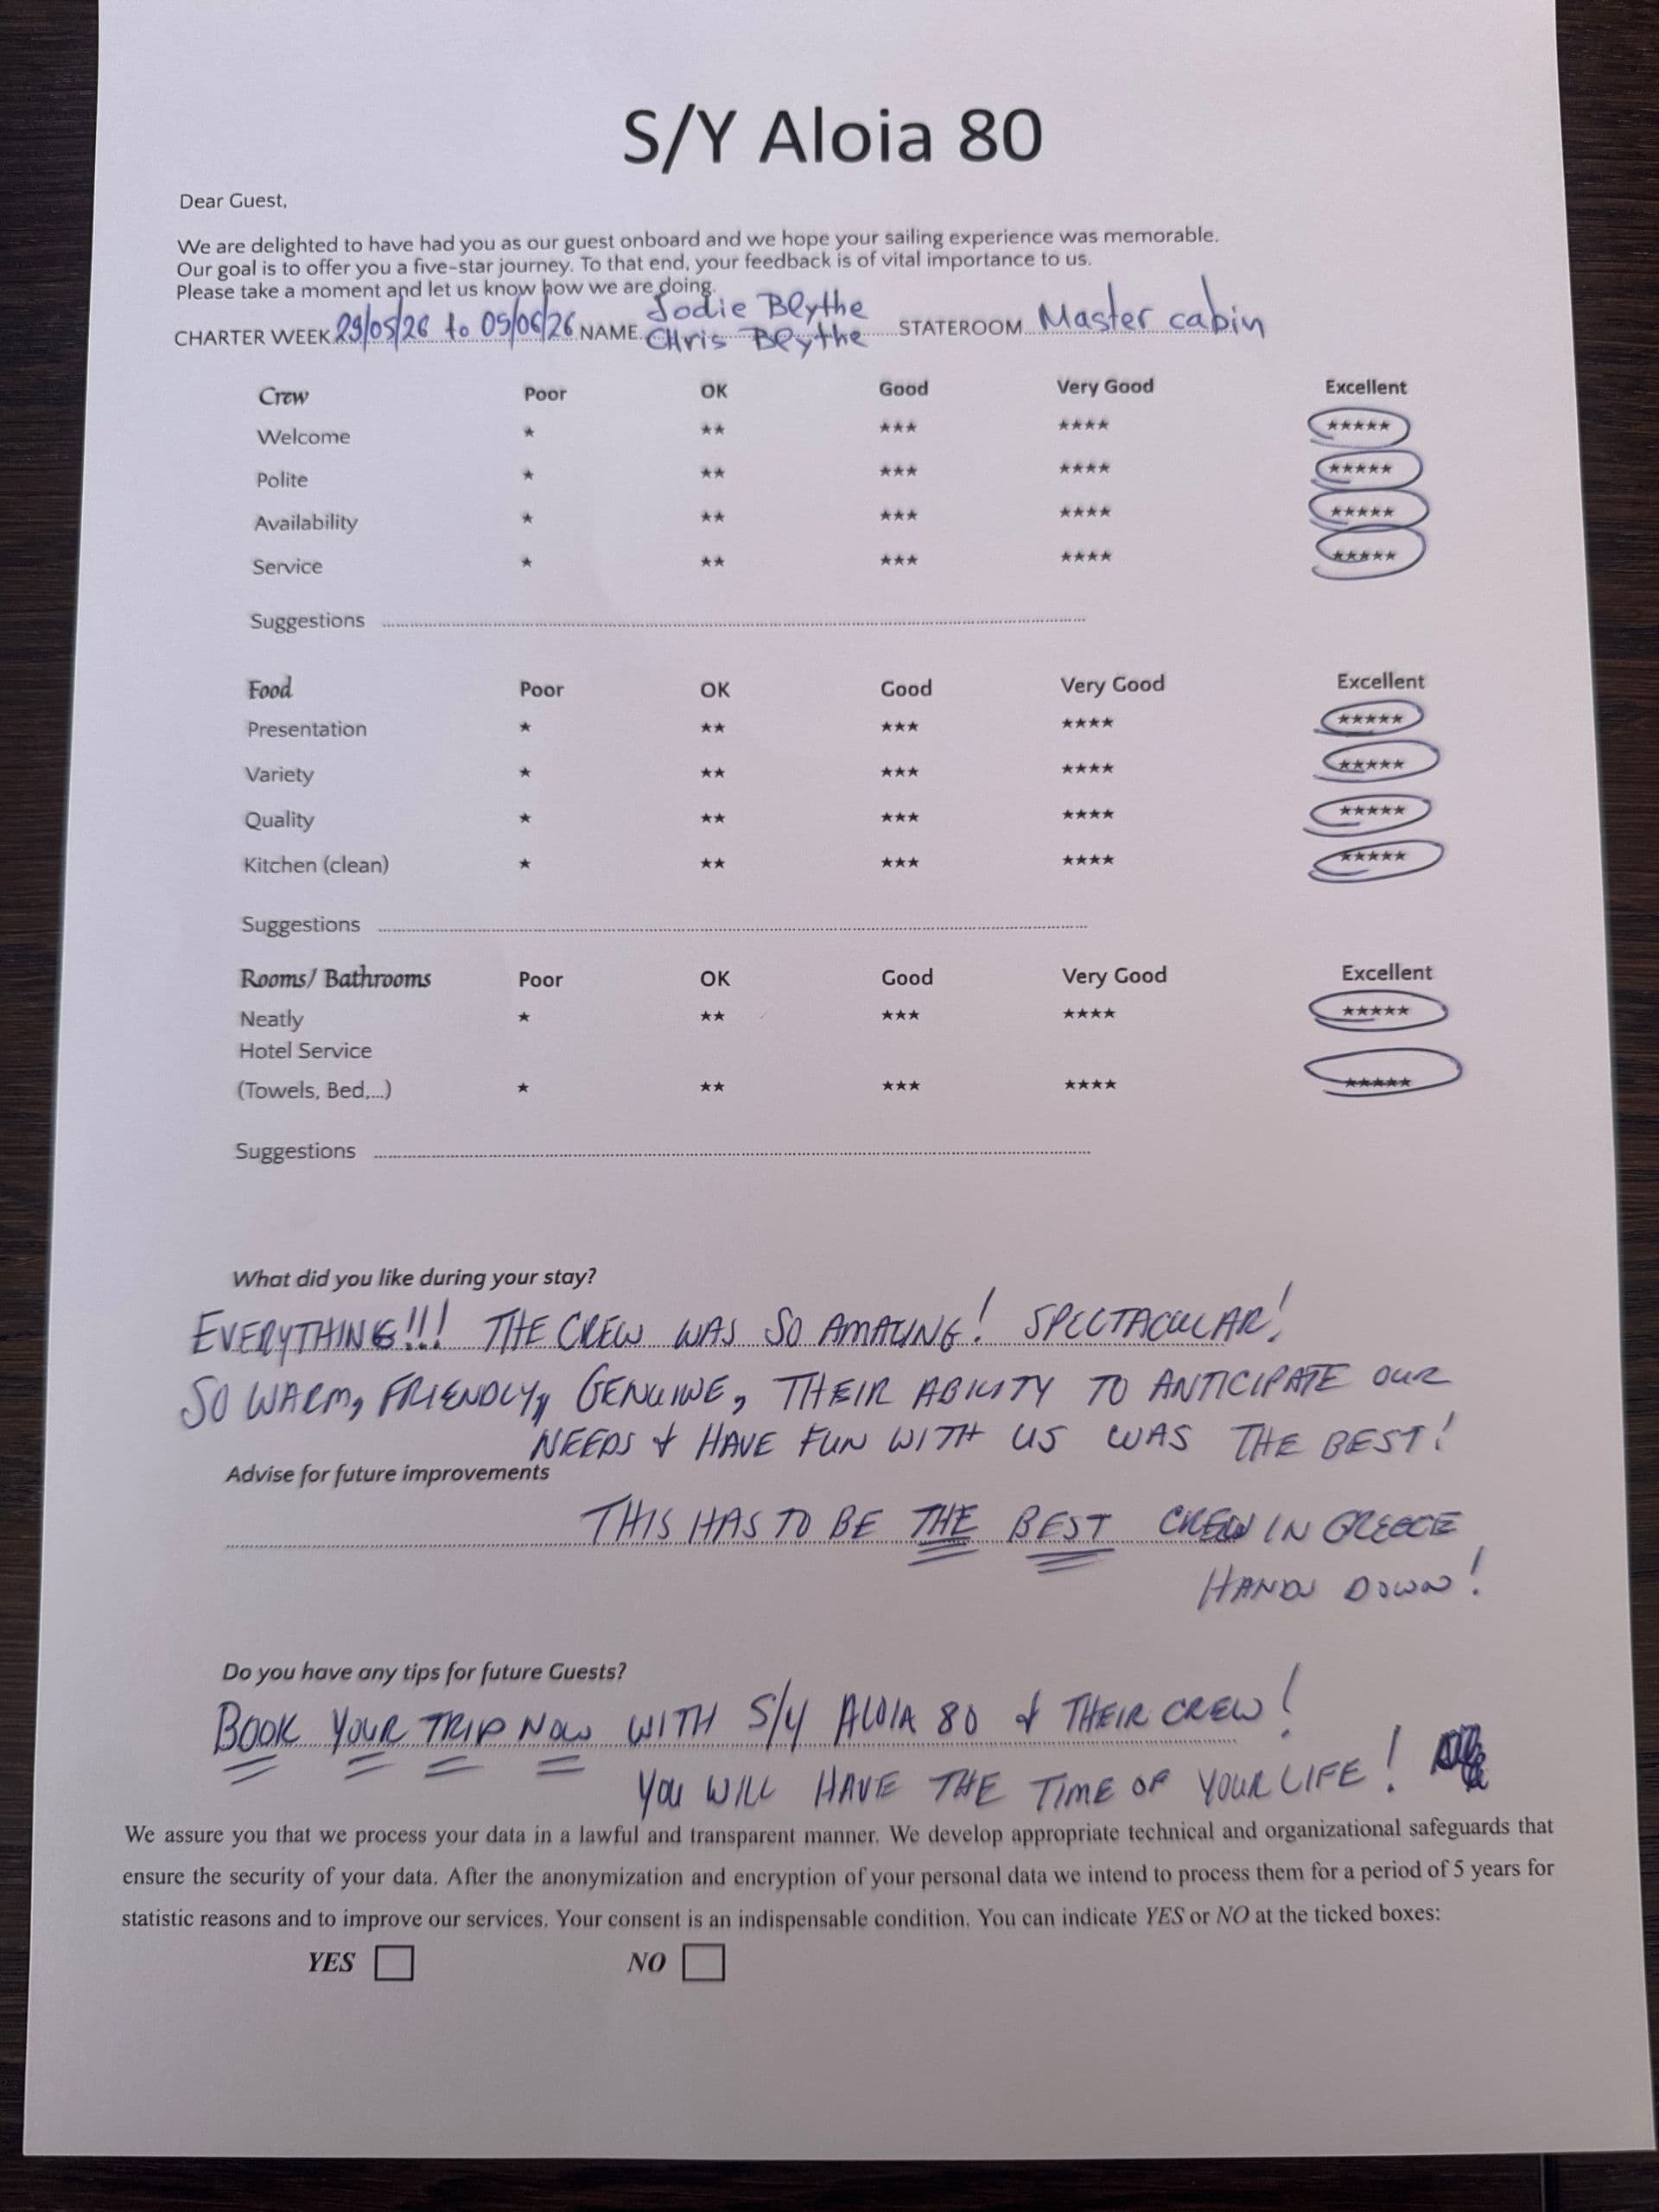 S/Y Aloia 80
Dear Guest,
We are delighted to have had you as our guest onboard and we hope your sailing experience was memorable.
Our goal is to offer you a five-star journey. To that end, your feedback is of vital importance to us.
Please take a moment and let us know how we are doing.
CHARTER WEEK 29/05/26 to 05/06/26 NAME Jodie Blythe
Chris Blythe STATEROOM Master cabin
Crew Poor OK Good Very Good Excellent
Welcome ★ ★★ ★★★ ★★★★ ★★★★★
Polite ★ ★★ ★★★ ★★★★ ★★★★★
Availability ★ ★★ ★★★ ★★★★ ★★★★★
Service ★ ★★ ★★★ ★★★★ ★★★★★
Suggestions
Food Poor OK Good Very Good Excellent
Presentation ★ ★★ ★★★ ★★★★ ★★★★★
Variety ★ ★★ ★★★ ★★★★ ★★★★★
Quality ★ ★★ ★★★ ★★★★ ★★★★★
Kitchen (clean) ★ ★★ ★★★ ★★★★ ★★★★★
Suggestions
Rooms/ Bathrooms Poor OK Good Very Good Excellent
Neatly ★ ★★ ★★★ ★★★★ ★★★★★
Hotel Service
(Towels, Bed,...) ★ ★★ ★★★ ★★★★ ★★★★★
Suggestions
What did you like during your stay?
EVERYTHING!!! THE CREW WAS SO AMAZING! SPECTACULAR!
SO WARM, FRIENDLY, GENUINE, THEIR ABILITY TO ANTICIPATE OUR
NEEDS & HAVE FUN WITH US WAS THE BEST!
Advise for future improvements
THIS HAS TO BE THE BEST CREW IN GREECE
HANDS DOWN!
Do you have any tips for future Guests?
BOOK YOUR TRIP NOW WITH S/Y ALOIA 80 & THEIR CREW!
YOU WILL HAVE THE TIME OF YOUR LIFE!
We assure you that we process your data in a lawful and transparent manner. We develop appropriate technical and organizational safeguards that
ensure the security of your data. After the anonymization and encryption of your personal data we intend to process them for a period of 5 years for
statistic reasons and to improve our services. Your consent is an indispensable condition. You can indicate YES or NO at the ticked boxes:
YES NO